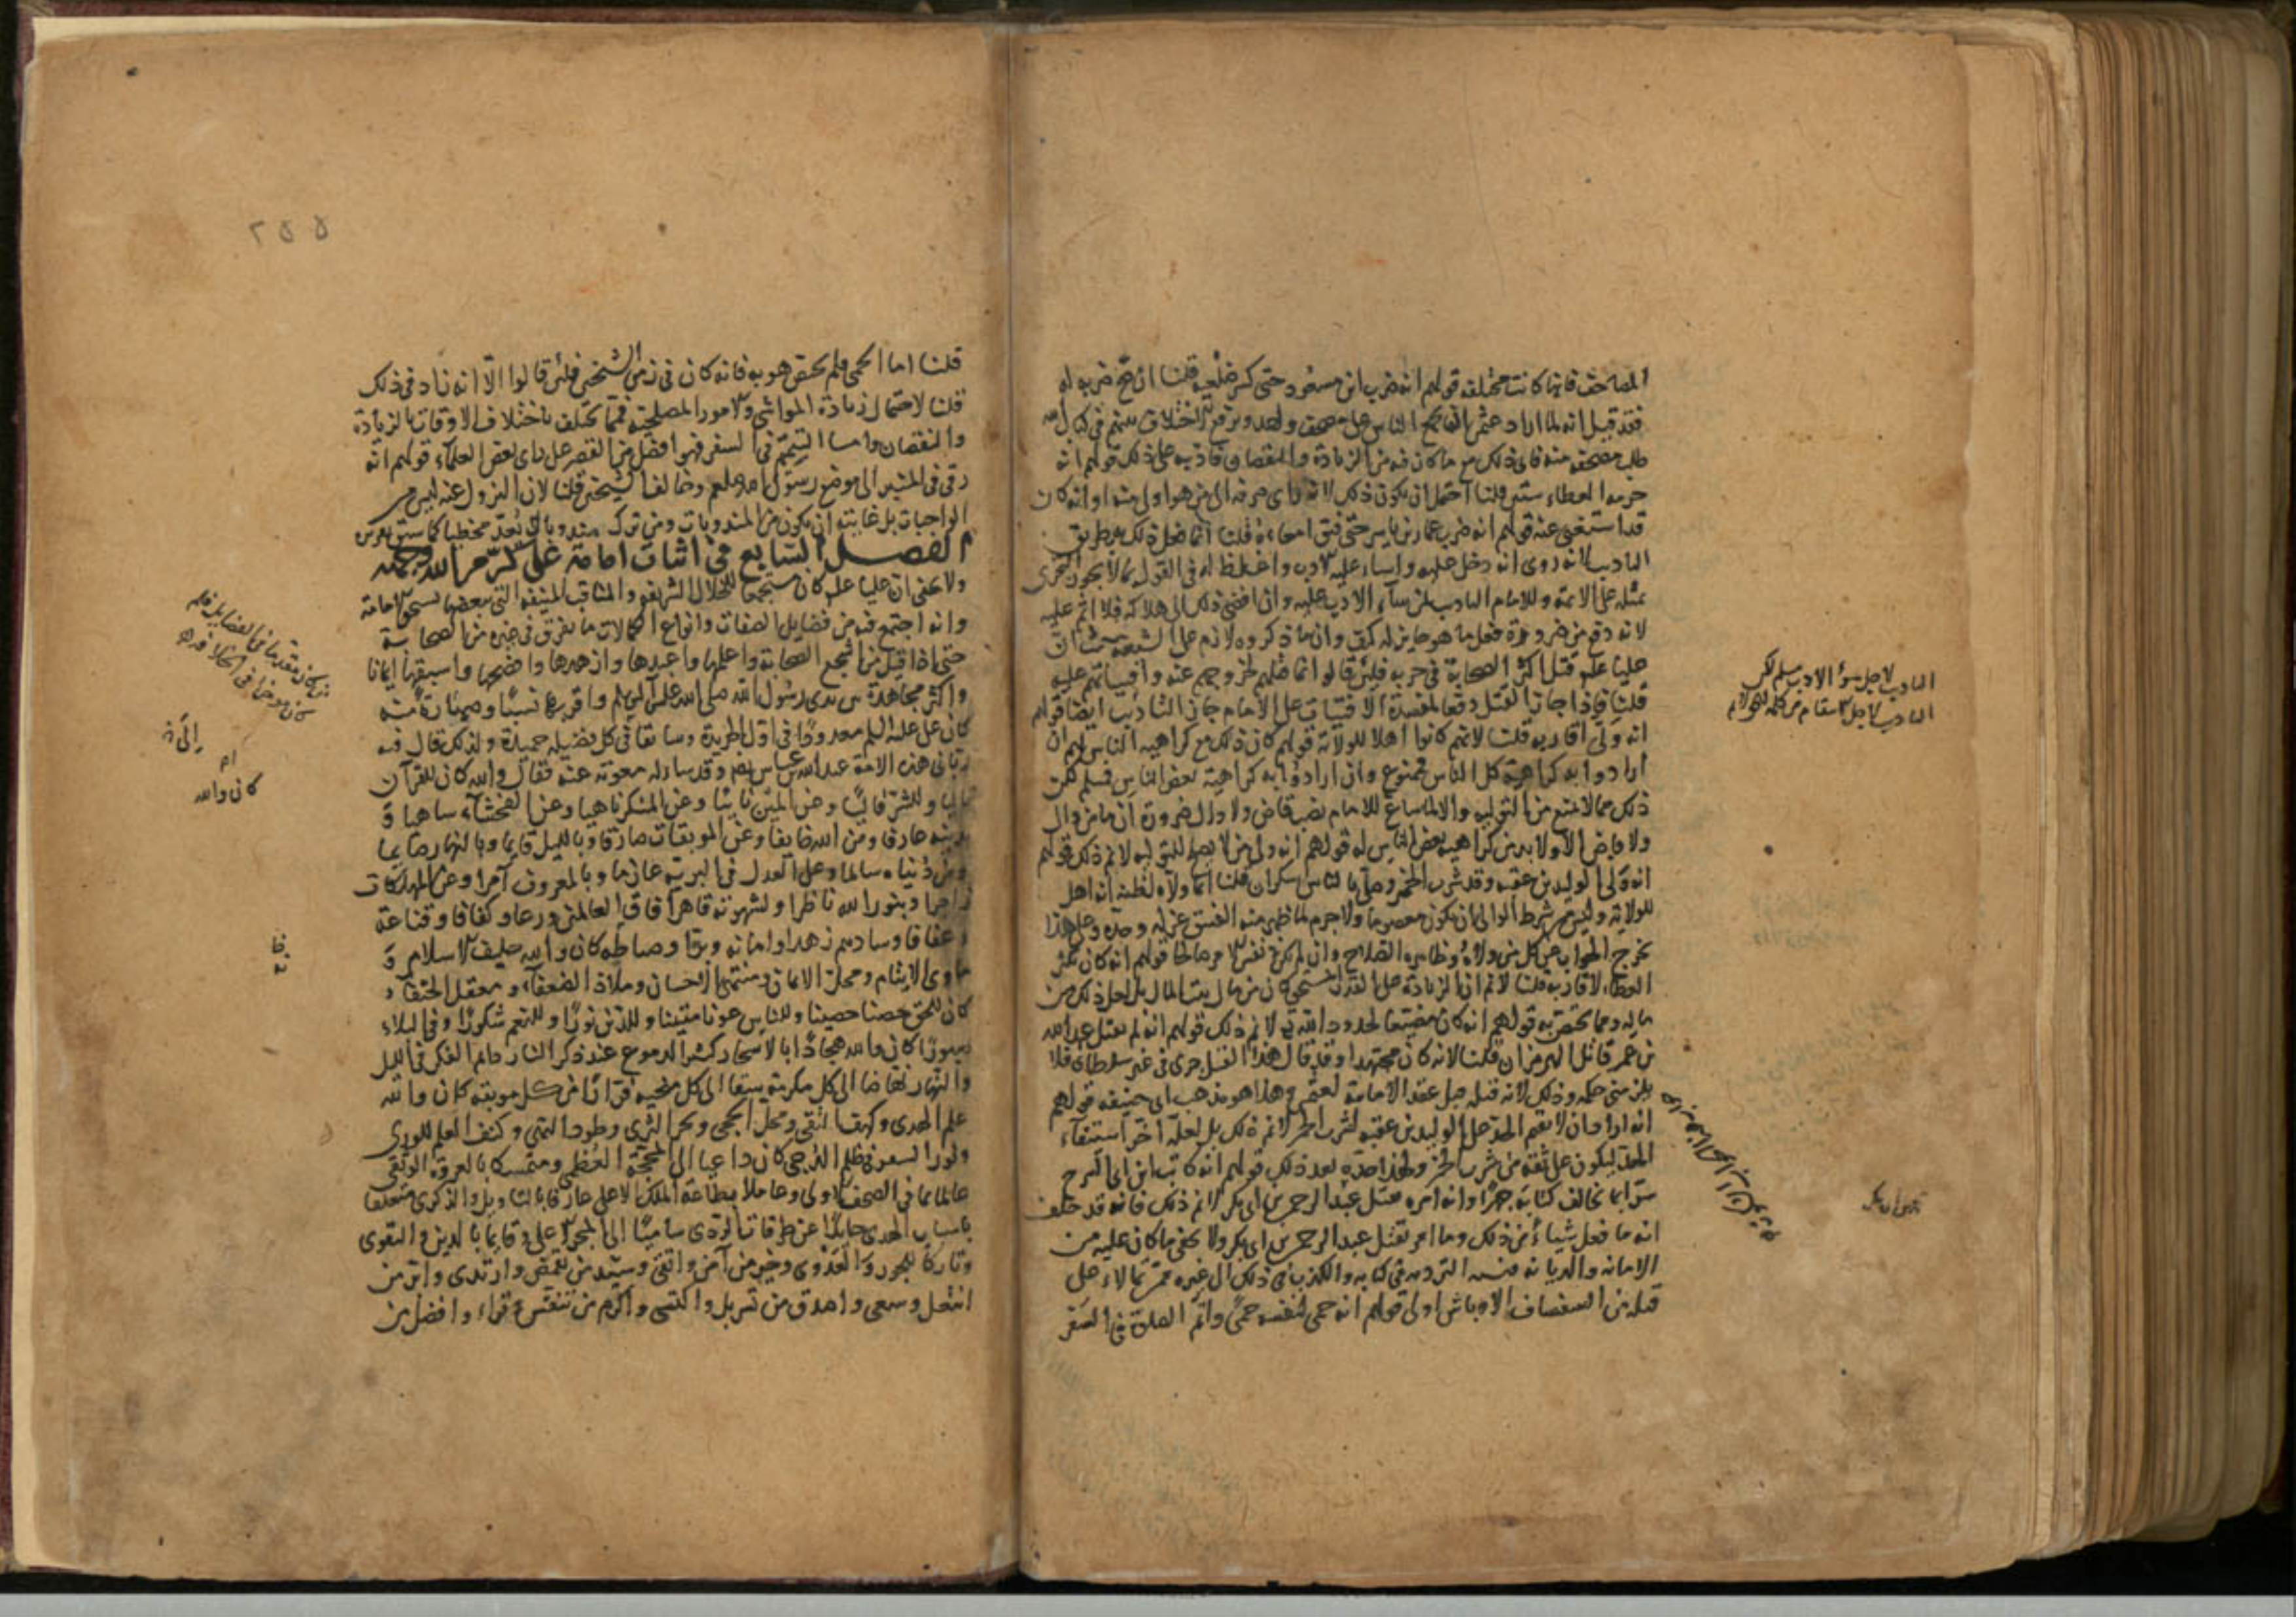 المصاحف فانها كانت مختلفة قولهم انه ضرب ابن مسعود حتى كسر ضلعيه قلنا ان صح ضربه له
فقد قيل انه لما اراد عثمن ان يجمع الناس على مصحف واحد ويرفع الاختلاف بينهم في كتاب الله
طلب مصحفه منه فابى ذلك مع ما كان فيه من الزيادة والنقصان فادبه على ذلك قولهم انه
حرمه العطاء سنتين قلنا احتمل ان يكون ذلك لانه راى صرفه الى من هو اولى منه او انه كان
قد استغنى عنه قولهم انه ضرب عمار بن ياسر حتى فتق امعاءه قلنا انما فعل ذلك بطريق
التاديب لانه روى انه دخل عليه واساء عليه الادب واغلظ له في القول بما لا يجوز التجرى
بمثله على الائمة وللامام التاديب لمن ساء الادب عليه وان افضى ذلك الى هلاكه فلا اثم عليه
لانه وقع من ضرورة فعل ما هو جايز له كيف وان ما ذكروه لازم على الشيعة حيث ان
عليا علم قتل اكثر الصحابة في حربه فلئن قالوا انما قتلهم لخروجهم عنه وافتياتهم عليه
قلنا فاذا جاز القتل دفعا لمفسدة الافتيات على الامام جاز التاديب ايضا قولهم
انه ولى اقاربه قلنا لانهم كانوا اهلا للولاية قولهم كان ذلك مع كراهية الناس لهم ان
ارادوا به كراهية كل الناس فممنوع وان ارادوا به كراهية بعض الناس فمسلم لكن
ذلك مما لا يمنع من التولية والا لما ساغ للامام نصب قاض ولا وال ضرورة ان ما من وال
ولا قاض الا ولا بد من كراهية بعض الناس له قولهم انه ولى من لا يصلح للتولية لا نم ذلك قولهم
انه ولى الوليد بن عقبه وقد شرب الخمر وصلى بالناس سكران قلنا انما ولاه لظنه انه اهل
للولاية وليس من شرط الوالى ان يكون معصوما ولا جرم لما ظهر منه الفسق عزله وحده وعلى هذا
يخرج الجواب عن كل من ولاه وظاهره الصلاح وان لم يكن في نفس الامر صالحا قولهم انه كان يكثر
العطاء لاقاربه قلنا لا نم ان الزيادة على القدر المستحق كان من مال بيت المال بل لعل ذلك من
ماله ومما يختص به قولهم انه كان مضيعا لحدود الله تع لا نم ذلك قولهم انه لم يقتل عبيد الله
بن عمر قاتل الهرمزان قلنا لانه كان مجتهدا وقد قال هذا القتل جرى في غير سلطانى فلا
يلزمنى حكمه وذلك لانه قتله قبل عقد الامامة لعثمن وهذا هو مذهب ابى حنيفة قولهم
انه اراد ان لا يقيم الحد على الوليد بن عقبه لشرب الخمر لا نم ذلك بل لعله اخر استيفاء
الحد ليكون على ثقة من شرب الخمر ولهذا حده بعد ذلك قولهم انه كاتب ابن ابى السرح
سرا بما يخالف كتابه جهرا وانه امره بقتل عبد الرحمن بن ابى بكر لا نم ذلك فانه قد حلف
انه ما فعل شيا من ذلك وما امر بقتل عبد الرحمن بن ابى بكر ولا يخفى ما كان عليه من
الامانه والديانة فنسبة التزوير في كتابه والكذب في ذلك الى غيره ممن تمالاء على
قتله من الاوباش اولى قولهم انه حمى لنفسه حمى واتم الصلوة في السفر
التاديب لاجل سوء الادب مسلم لكن
٢٥٥
قلنا اما الحمى فلم يختص هو به فانه كان في زمن الشيخين فلئن قالوا الا انه زاد في ذلك
قلنا لاحتمال زيادة المواشى والامور المصلحية مما يختلف باختلاف الاوقات بالزيادة
والنقصان واما التيمم في السفر فهو افضل من القصر على راى بعض العلماء قولهم انه
رقى في المنبر الى موضع رسول الله صلعم وخالف الشيخين قلنا لان النزول عنه ليس من
الواجبات بل غايته ان يكون من المندوبات ومن ترك مندوبا لا يعد مخطيا كما سبق تعريفه
الفصل السابع في اثبات امامة على كرم الله وجهه
ولا يخفى ان عليا علم كان مستجمعا للخلال الشريفه والمناقب المنيفه التى ببعضها يستحق الامامة
وانه اجتمع فيه من فضايل الصفات وانواع الكمالات ما تفرق في غيره من الصحابة
حتى اذا قيل من اشجع الصحابة واعلمها واعبدها وازهدها وافصحها واسبقها ايمانا
واكثر مجاهدة بين يدى رسول الله صلى الله على آله سلم واقربها نسبا وصهارة منه
كان على عليه السلم معدودا في اول الجريدة وسابقا في كل فضيلة حميدة ولذلك قال فيه
ربانى هذه الامة عبد الله بن عباس رضه وقد ساله معويه عنه فقال والله كان للقرآن
تاليا وللشر قاليا وعن المين نايئا وعن المنكر ناهيا وعن الفحشاء ساهيا و
بدينه عارفا ومن الله خايفا وعن الموبقات صادفا وبالليل قايما وبالنهار صايما
ومن دنياه سالما وعلى العدل في البرية عازما وبالمعروف آمرا وعن المهلكات
زاجرا وبنور الله ناظرا ولشهوته قاهرا فاق العالمين ورعا وكفافا وقناعة
وعفافا وسادهم زهدا وامانه وبرا وحياطه كان والله حليف الاسلام و
ماوى الايتام ومحل الايمان ومنتهى الاحسان وملاذ الضعفاء ومعقل الحنفاء
كان للحق حصنا حصينا وللناس عونا متينا وللدين نورا وللنعم شكورا وفي البلاء
صبورا كان والله هجادا بالاسحار كثير الدموع عند ذكر النار دايم الفكر في الليل
والنهار نهاضا الى كل مكرمة سعا الى كل منجيه فرارا من كل موبقه كان والله
علم الهدى وكهف التقى ومحل الحجى وبحر الندى وطود النهى وكنف العلم للورى
ونور السفر في ظلم الدجى كان داعيا الى المحجة العظمى ومتمسكا بالعروة الوثقى
عالما بما في الصحف الاولى وعاملا بطاعة الملك الاعلى عارفا بالتاويل والذكرى متعلقا
باسباب الهدى حايدا عن طرقات الردى ساميا الى المجد والعلى وقايما بالدين والتقوى
وتاركا للجور والعدوى وخير من آمن واتقى وسيد من تقمص وارتدى وابر من
انتعل وسعى واصدق من تسربل واكتسى واكرم من تنفس وقراء وافضل من
كان والله